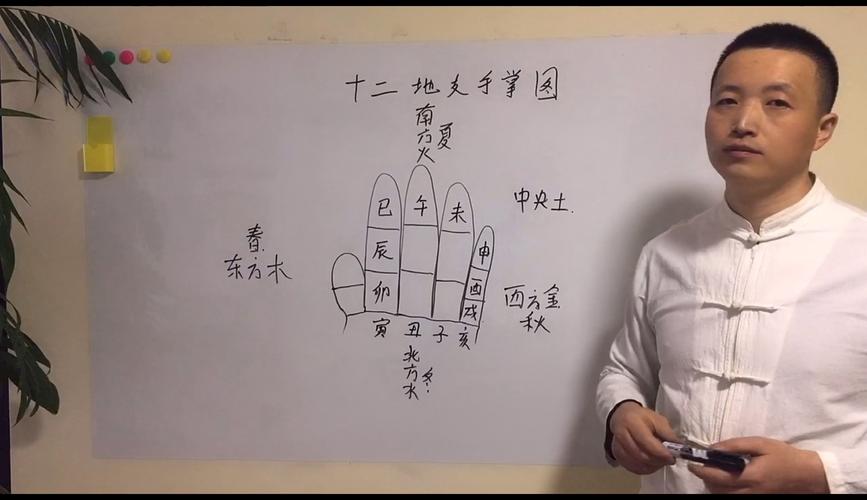 十二地支手掌图
南方火
夏
巳 午 未
中央土.
春
东方木
辰 申
卯 酉
西方金
秋
戌
寅 丑 子 亥
北方水
冬